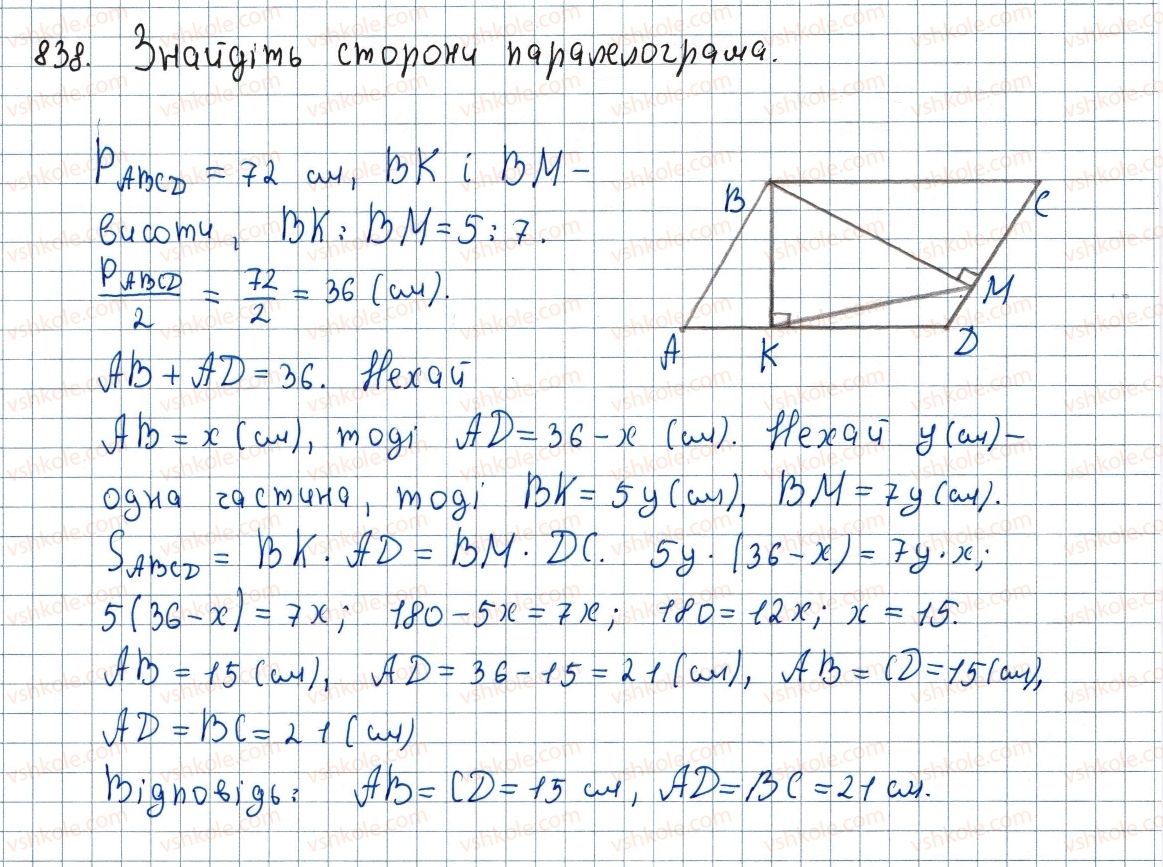 838. Знайдіть сторони паралелограма.
P_ABCD = 72 см, BK і BM –
висоти, BK : BM = 5 : 7.
P_ABCD / 2 = 72 / 2 = 36 (см).
AB + AD = 36. Нехай
AB = x (см), тоді AD = 36 – x (см). Нехай y (см) –
одна частина, тоді BK = 5y (см), BM = 7y (см).
S_ABCD = BK · AD = BM · DC. 5y · (36 – x) = 7y · x;
5(36 – x) = 7x; 180 – 5x = 7x; 180 = 12x; x = 15.
AB = 15 (см), AD = 36 – 15 = 21 (см), AB = CD = 15 (см),
AD = BC = 21 (см)
Відповідь: AB = CD = 15 см, AD = BC = 21 см.
B
C
M
A
K
D
vshkole.com